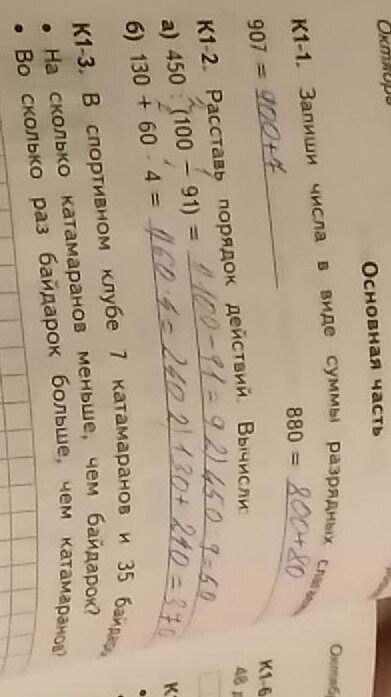 Октябрь
Основная часть
К1-1. Запиши числа в виде суммы разрядных
907 = 900+7 880 = 800+80
К1-2. Расставь порядок действий. Вычисли:
а) 450 : (100 − 91) = 1)100-91=9 2)450:9=50
б) 130 + 60 · 4 = 1)60·4=240 2)130+240=370
К1-3. В спортивном клубе 7 катамаранов и 35
• На сколько катамаранов меньше, чем байдарок?
• Во сколько раз байдарок больше, чем катамаранов?
Октябрь
К1-6
48